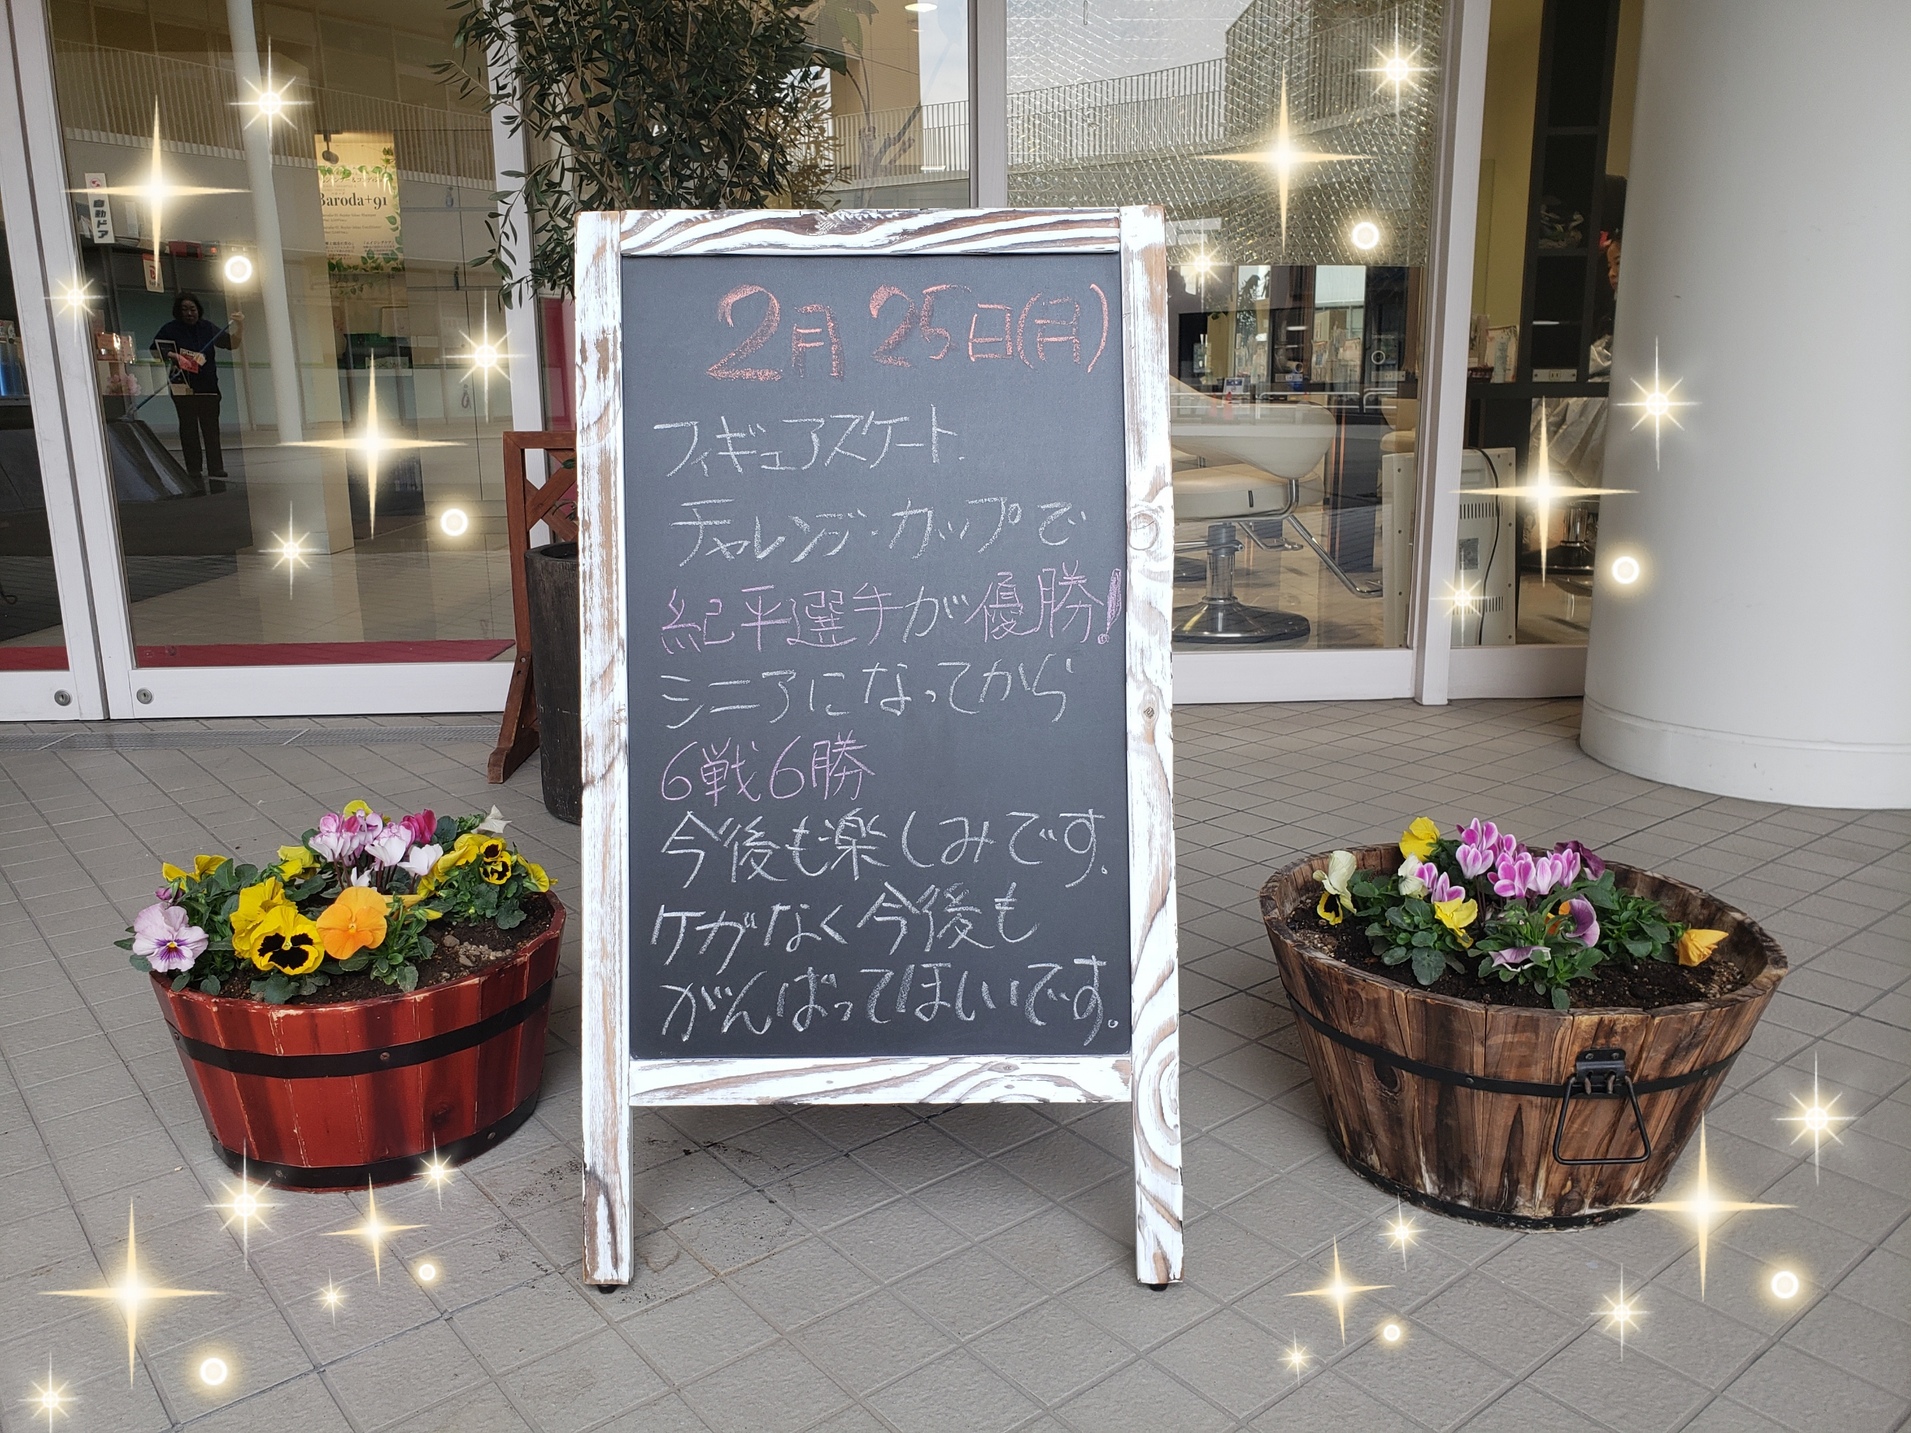 2月25日(月)
フィギュアスケート
チャレンジ・カップで
紀平選手が優勝!
シニアになってから
6戦6勝
今後も楽しみです。
ケガなく今後も
がんばってほしいです。
自動ドア
Baroda+91